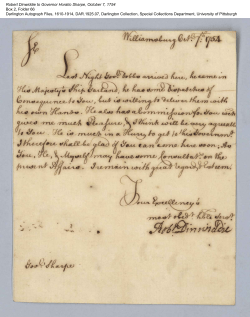 Robert Dinwiddie to Governor Horatio Sharpe, October 7, 1754
Box 2, Folder 66
Darlington Autograph Files, 1610-1914, DAR.1925.07, Darlington Collection, Special Collections Department, University of Pittsburgh
Williamsburg Octr. 7th. 1754
Sr.
Last Night Govr. Dobbs arrived here, he came in
His Majesty's Ship Garland, he has some Dispatches of
Consequence to You, but is willing to deliver them with
his own Hands. He has also a Commission for You wch
gives me much Pleasure, & I think will be very agreeable
to You. He is much in a Hurry to get to his Governmt.
I therefore shall be glad if You can come here soon; As
You, He, & Myself may have some Consultatn. on the
present Affairs. I remain with great regard & Esteem.
Your Excellency's
most obedt. hble Servt.
Robt. Dinwiddie
Govr. Sharpe